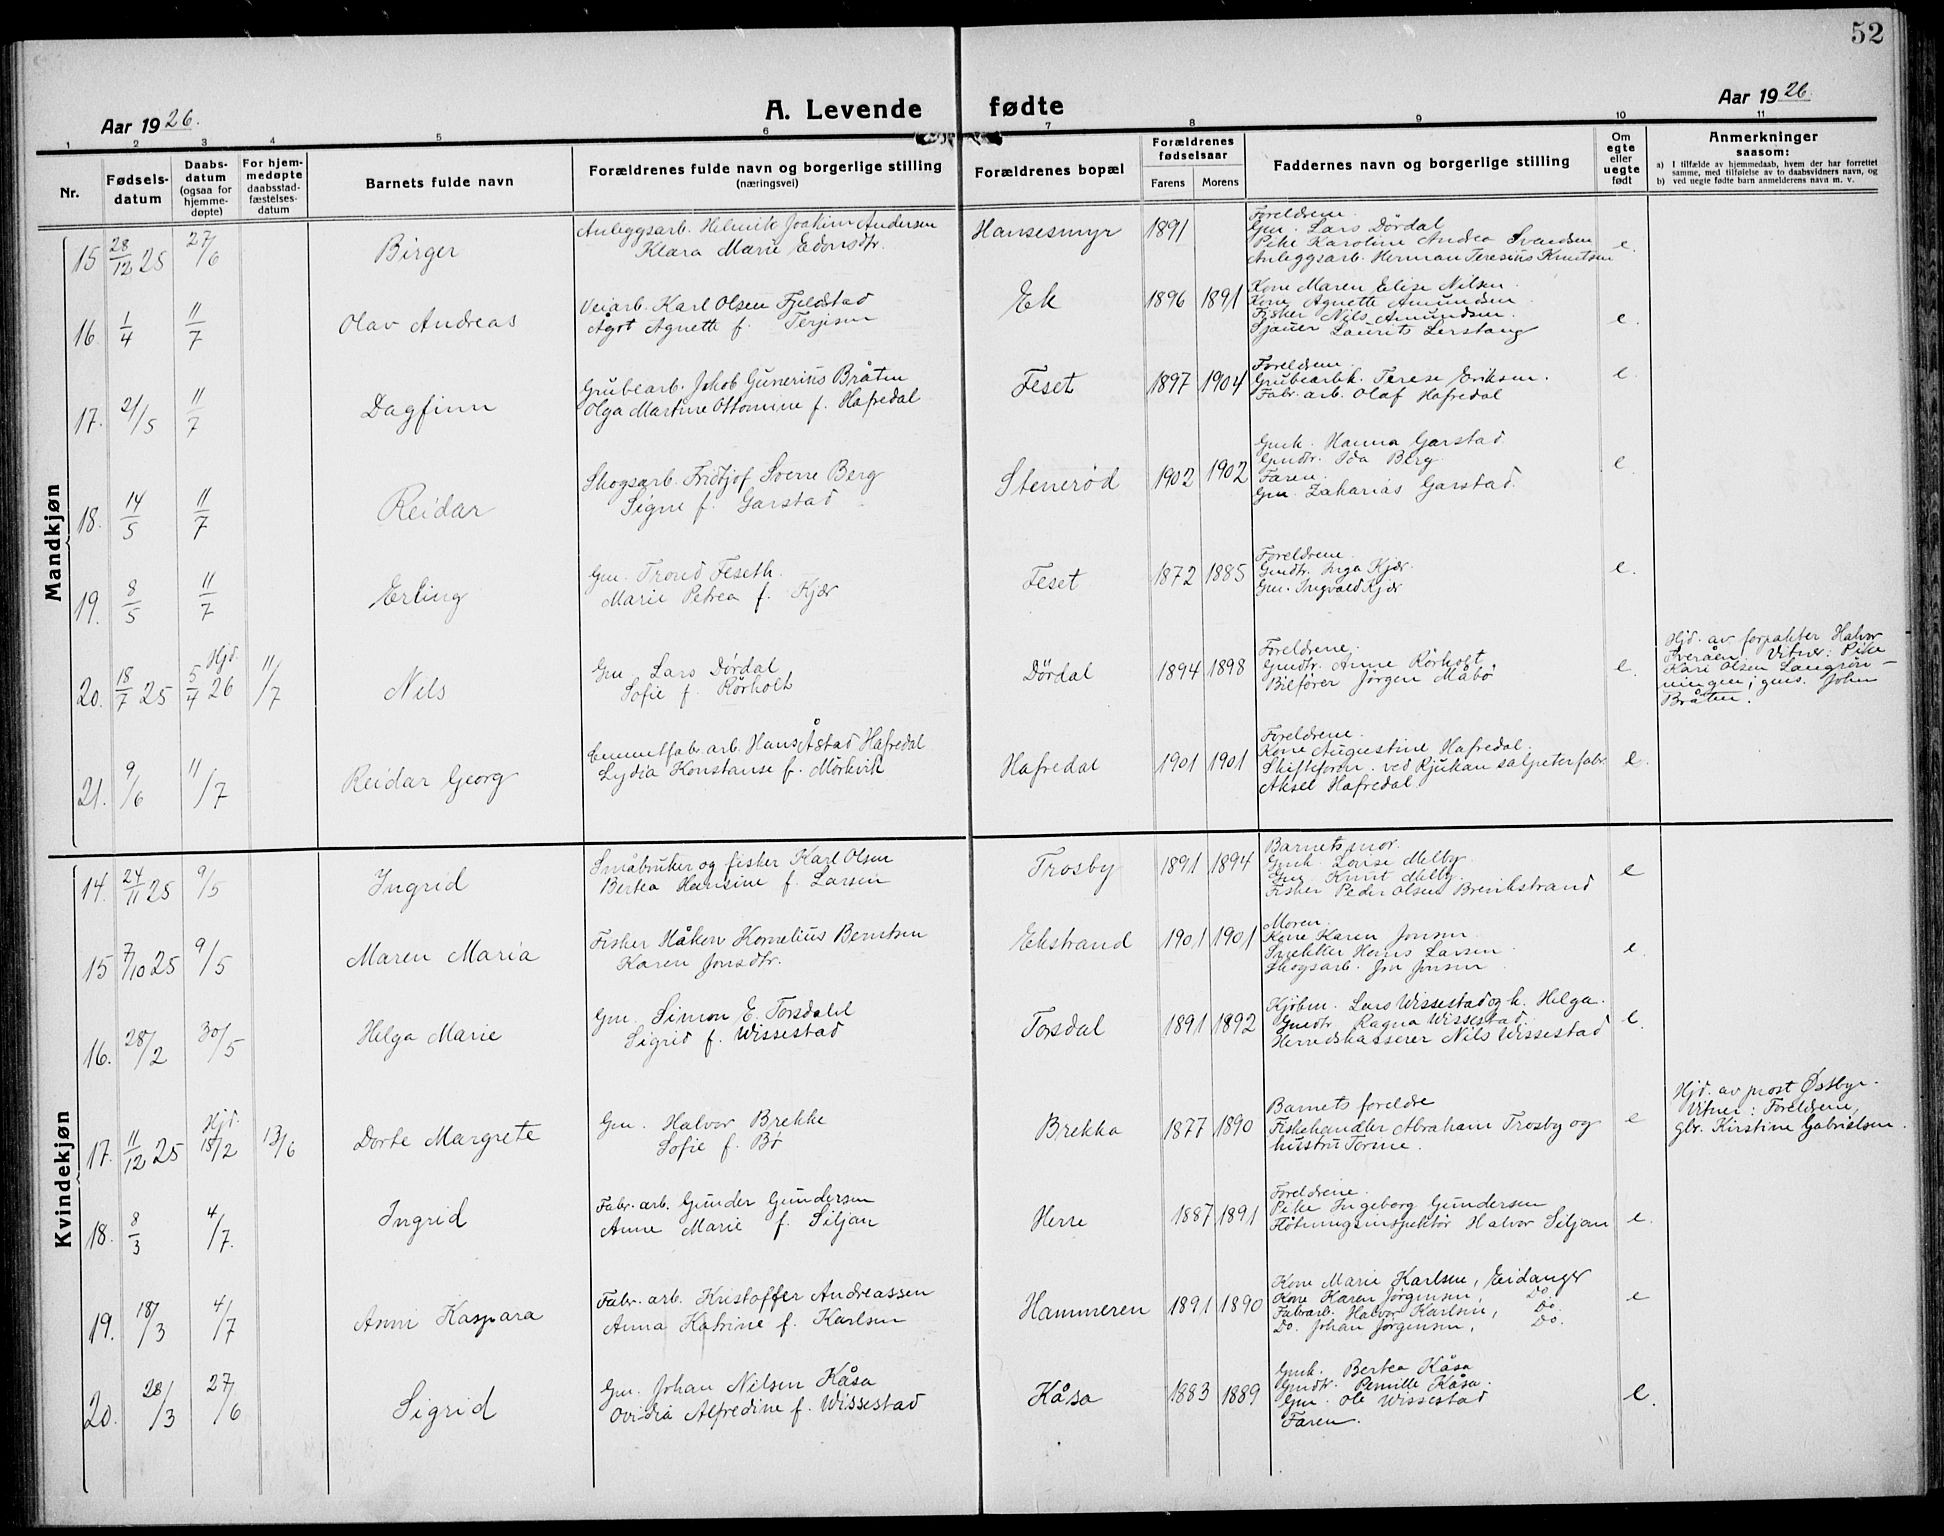 52
Aar 1926.
A. Levende fødte
Aar 1926.
1 2 3 4 5 6 7 8 9 10 11
Nr.
Fødsels-
datum
Daabs-
datum
(ogsaa for
hjemme-
døpte)
For hjem-
medøpte
daabsstad-
fæstelses-
datum
Barnets fulde navn
Forældrenes fulde navn og borgerlige stilling
(næringsvei)
Forældrenes bopæl
Forældrenes
fødselsaar
Farens Morens
Faddernes navn og borgerlige stilling
Om
egte
eller
uegte
født
Anmerkninger
saasom:
a) I tilfælde av hjemmedaab, hvem der har forrettet
samme, med tilføielse av to daabsvidners navn, og
b) ved uegte fødte barn anmelderens navn m. v.
Mandkjøn
15 28/12 25 27/6 Birger
Anleggsarb. Helmik Joakim Andersen
Klara Marie Edvardsdtr.
Hansesmyr 1891
Foreldrene.
Gm. Lars Dördal
Pike Karoline Andrea Svendsen
Anleggsarb. Herman Teresius Knutsen
e.
16. 1/4 11/7 Olav Andreas
Veiarb. Karl Olsen Fjeldstad
Ågot Agnette f. Terjesen
Ek 1896 1891
Kone Maren Elise Nilsen.
Kone Agnette Amundsen.
Fisker Nils Amundsen.
Sjauer Laurits Lerstang
e.
17. 21/5 11/7 Dagfinn
Grubearb. Jakob Gunerius Bråten
Olga Martine Ottomine f. Hafredal
Feset 1897 1904
Foreldrene.
Grubearbk. Terese Eriksen.
Fabr. arb. Olaf Hafredal
e.
18. 14/5 11/7 Reidar
Skogsarb. Fridtjof Sverre Berg
Signe f. Garstad
Stenerød 1902 1902
Gmk. Hanna Garstad
Gmdtr. Ida Berg.
Faren.
Gm. Zakarias Garstad.
e.
19. 8/5 11/7 Erling
Gm. Trond Feseth.
Marie Petrea f. Kjær
Feset 1872 1885
Foreldrene.
Gmdtr. Inga Kjær.
Gm. Ingvald Kjær
e.
20. 18/7 25 Hjd. 5/4 26 11/7 Nils
Gm Lars Dördal
Sofie f. Rörholt
Dördal 1894 1898
Foreldrene.
Gmdtr. Anne Rörholt
Bilförer Jörgen Måbö
e.
Hjd. av forpakter Halvor
Sveråen, Vitner: Pike
Kari Olsen Langrön-
ningen; gms. John
Bråten.
21. 9/6 11/7 Reidar Georg
Cementfabr. arb. Hans Åstad Hafredal
Lydia Konstanse f. Mörkvik
Hafredal 1901 1901
Foreldrene.
Kone Augustine Hafredal.
Skifteform. ved Rjukan salpeterfabr.
Aksel Hafredal.
e.
Kvindekjøn
14. 24/11 25 9/5 Ingrid
Småbruker og fisker Karl Olsen
Bertea Hansine f. Larsen
Trosby 1891 1894
Barnets mor.
Gmk. Lovise Melby.
Gm. Knut Melby.
Fisker Peder Olsen Brenkstrand
e
15 7/10 25 9/5 Maren Maria
Fisker Håken Kornelius Berntsen
Karen Jonsdtr.
Ekstrand 1901 1901
Moren.
Kone Karen Jonsen
Snekker Hans Larsen
Skogsarb. Jon Jonsen
e.
16. 28/2 30/5 Helga Marie
Gm. Simon E. Torsdahl
Sigrid f. Wissestad
Torsdal 1891 1892
Kjöbm. Lars Wissestad og h. Helga.
Gmdtr. Ragna Wissestad.
Herredskasserer Nils Wissestad
e.
17. 11/12 25 Hjd. 15/2 13/6 Dorte Margrete
Gm. Halvor Brekke
Sofie f. Bø
Brekka 1877 1890
Barnets foreldre
Fiskehandler Abraham Trosby og
hustru Tomine.
e
Hjd. av prost Østbye.
Vitner: Foreldrene,
gbr. Kirstine Gabrielsen.
18. 8/3 4/7. Ingrid
Fabr. arb. Gunder Gundersen
Anne Marie f. Siljan
Herre 1887 1891
Foreldrene.
Pike Ingeborg Gundersen
Flötningsinspektör Halvor Siljan
e.
19. 18/3 4/7 Anni Kaspara
Fabr. arb. Kristoffer Andreassen
Anna Katrine f. Karlsen
Hammeren 1891 1890
Kone Marie Karlsen, Eidanger
Kone Karen Jörgensen, Do.
Fabrarb. Halvor Karlsen, Do.
Do. Johan Jörgensen, Do.
e
20. 28/3 27/6 Sigrid
Gm. Johan Nilsen Kåsa
Ovidia Alfredine f. Wissestad
Kåsa 1883 1889
Gmk. Bertea Kåsa
Gmdtr. Pernille Kåsa.
Gm. Ole Wissestad
Faren.
e.